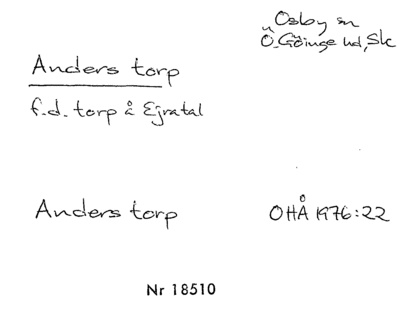 Osby sn
Ö. Göinge hd, Sk
Anders torp
f.d. torp å Ejratal
Anders torp
OHÅ 1976:22
Nr 18510